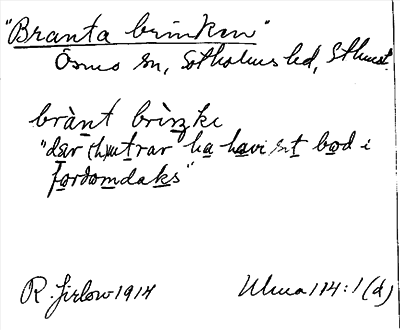 "Branta brinken"
Ösmo sn, Sotholms hd, Sthmsl.
brànt brìnke
"där (h)uttrar ha havi sit bod i
fordomdaks"
R. Jirlow 1914 Ulma 114:1 (d)